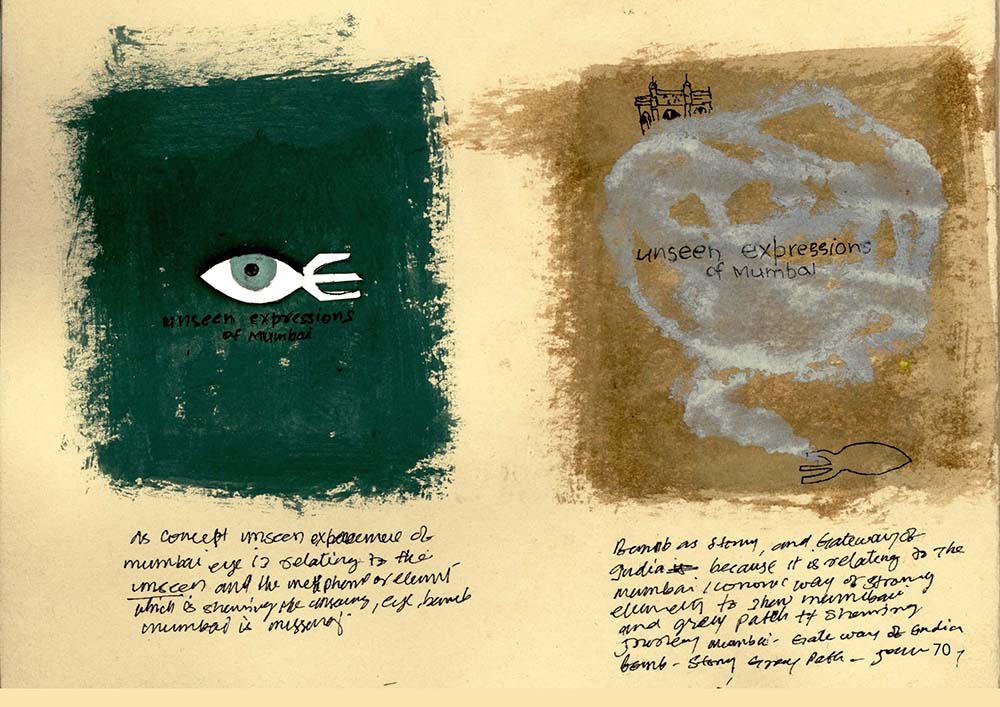 unseen expressions
of Mumbai
As concept unseen of
mumbai eye is relating to the
unseen and the or element
which is showing the eye, bomb
mumbai is missing
unseen expressions
of Mumbai
Bomb as Story, and Gateway of
India because it is relating to the
mumbai iconic way of strong
element to show mumbai
and grey path showing
journey mumbai - Gate way of India
bomb - Story Grey Path - 70